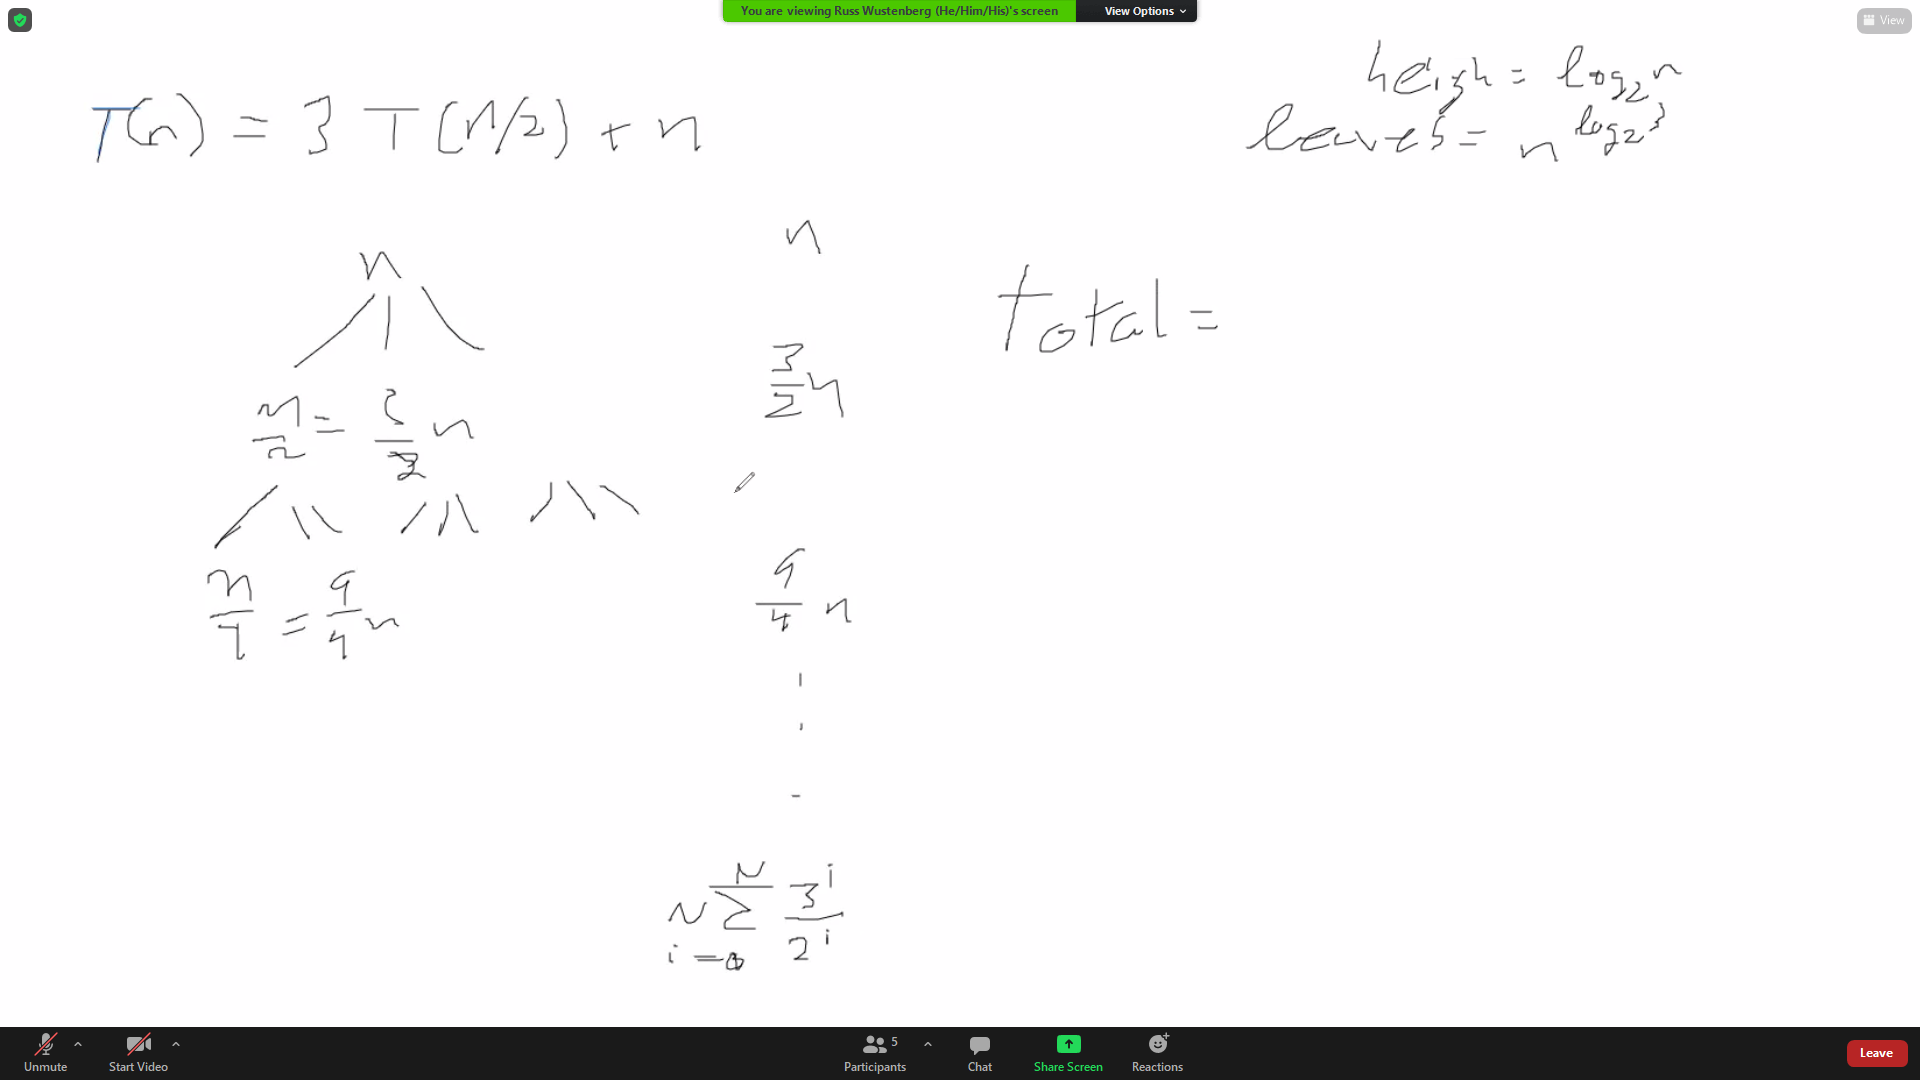 You are viewing Russ Wustenberg (He/Him/His)'s screen View Options
View
T(n) = 3 T(n/2) + n
heigh = log₂ n
leaves = n^log₂3
n
n
total =
3/2 n
n/2 = 3/2 n
9/4 n
n/4 = 9/4 n
N
N Σ 3^i/2^i
i = 0
Unmute Start Video Participants 5 Chat Share Screen Reactions Leave